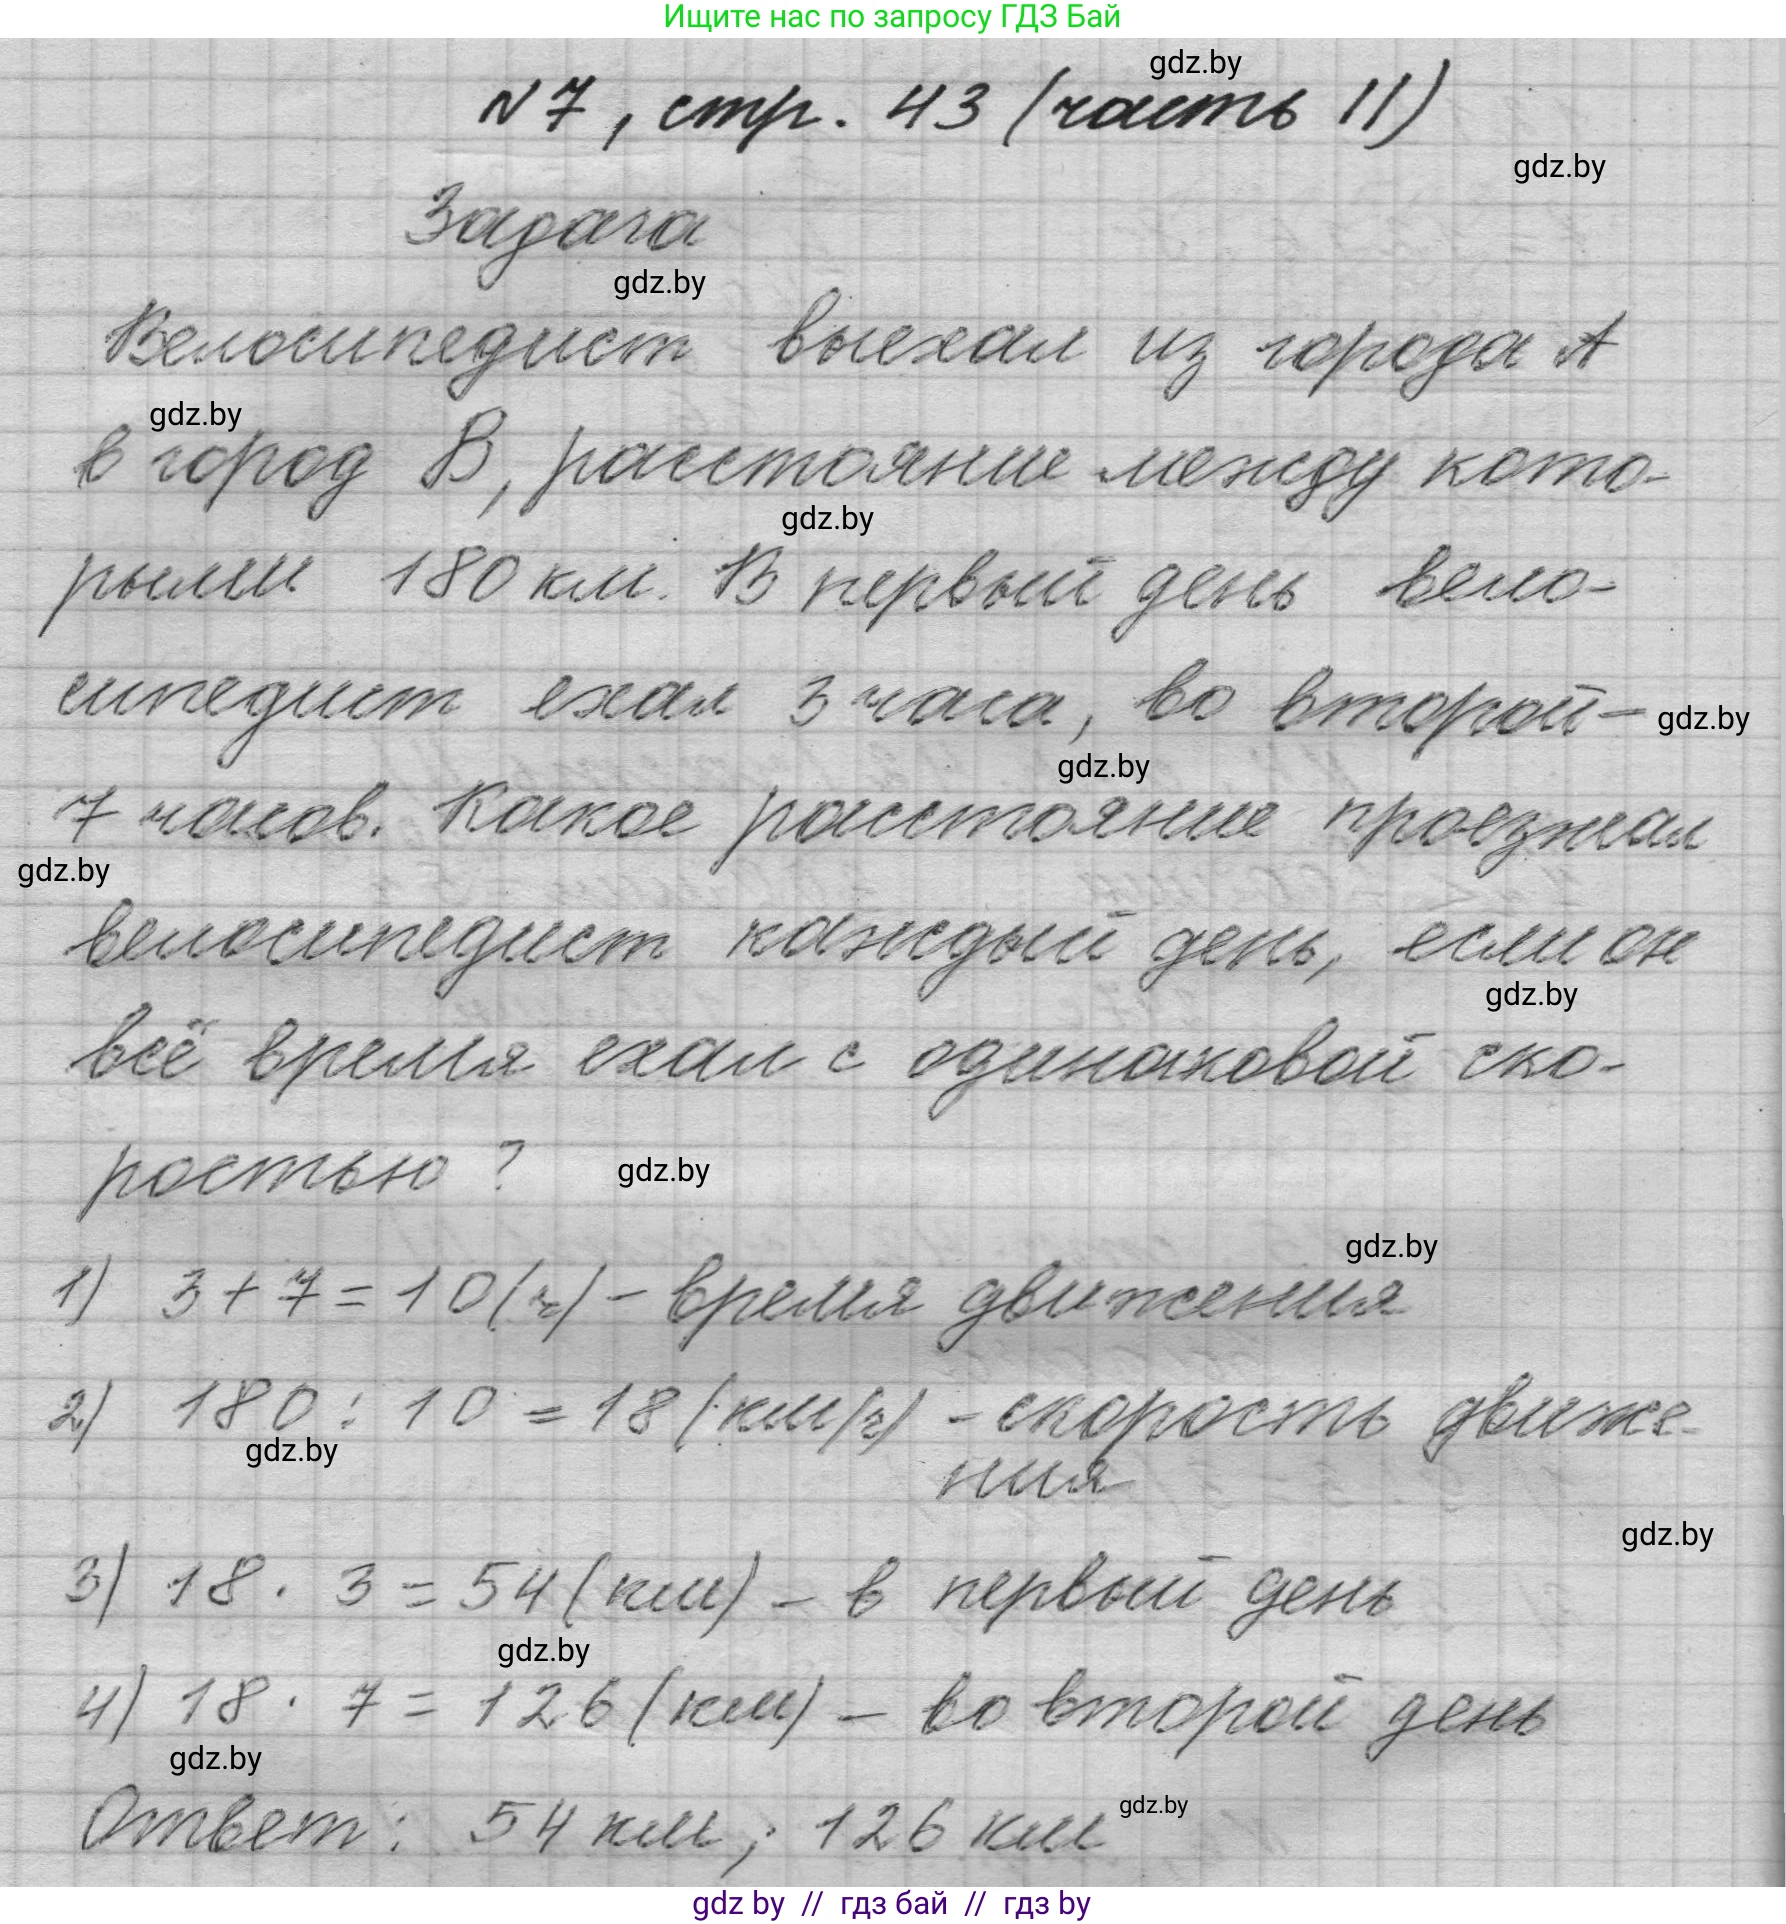 Ищите нас по запросу ГДЗ Бай
gdz.by
№7, стр. 43 (часть II)
gdz.by
Задача
gdz.by
Велосипедист выехал из города А
gdz.by
в город В, расстояние между кото-
gdz.by
рыми 180 км. В первый день вело-
сипедист ехал 3 часа, во второй -
gdz.by
gdz.by
7 часов. Какое расстояние проезжал
gdz.by
велосипедист каждый день, если он
gdz.by
всё время ехал с одинаковой ско-
ростью?
gdz.by
gdz.by
1) 3 + 7 = 10 (ч) - время движения
2) 180 : 10 = 18 (км/ч) - скорость движе-
gdz.by
ния
gdz.by
3) 18 · 3 = 54 (км) - в первый день
gdz.by
4) 18 · 7 = 126 (км) - во второй день
gdz.by
Ответ: 54 км; 126 км
gdz.by
gdz by // гдз бай // гдз by